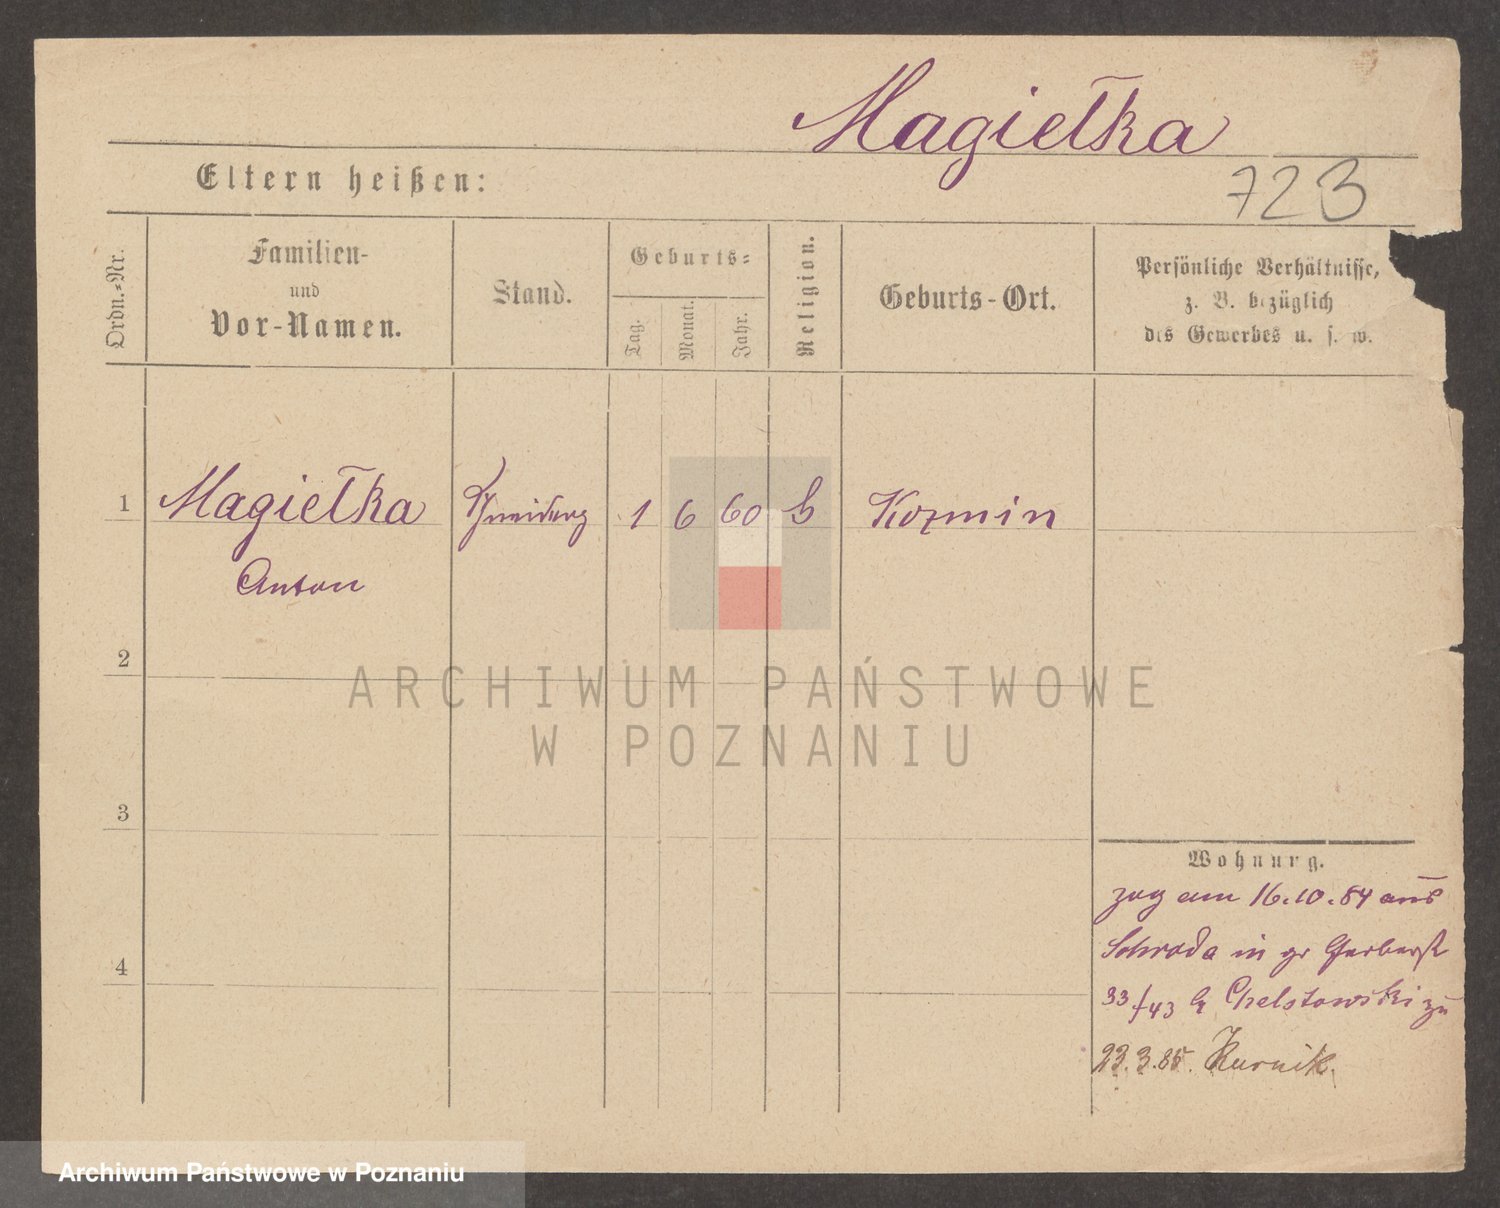 Magiełka
723
Eltern heißen:
Ordn.-Nr.
Familien-
und
Vor-Namen.
Stand.
Geburts-
Tag.
Monat.
Jahr.
Religion.
Geburts-Ort.
Persönliche Verhältnisse,
z. B. bezüglich
des Gewerbes u. s. w.
1 Magiełka 1 6 60 Kozmin
Anton
2
ARCHIWUM PAŃSTWOWE
W POZNANIU
3
4
Wohnung.
zog am 16.10.84 aus
Schroda in gr Gerberst
33/43 Chelstowski zu
23.3.85. Kurnik.
Archiwum Państwowe w Poznaniu